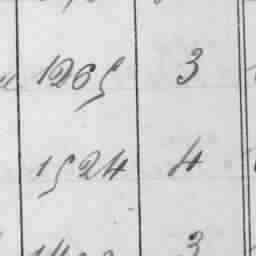 1265 3
1524 4
3